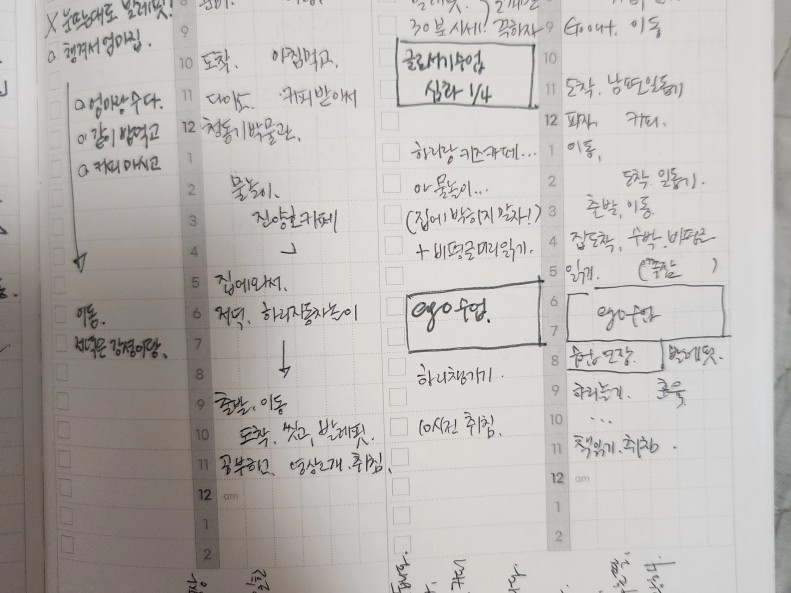 X 눈뜨는대로 발레핏!
챙겨서 엄마집.
엄마랑 수다.
같이 밥먹고
커피마시고
이동.
저녁은 강정이랑.
9
10 도착. 아침먹고.
11 다이소. 커피 받아서
12 청동기박물관.
1
2 물놀이.
3 진양호카페
4
5 집에와서.
6 저녁. 하리자동차놀이
7
8
9 출발. 이동
10 도착. 씻고, 발레핏.
11 공부하고 영상2개. 취침.
12 am
1
2
30분 시세! 꼭하자
글로서기수업
심화 1/4
하리랑 키즈카페...
아 물놀이...
(집에 박히지 말자!)
+ 비평글 미리읽기.
ego수업.
하리챙기기.
10시전 취침.
9 Go out. 이동
10
11 도착. 남편일돕기
12 피자. 커피.
1 이동.
2 도착. 일돕기.
3 출발. 이동
4 집도착, 수박.
5 읽기.
6 ego수업
7
8 수업연장. 발레핏.
9 하리놀기.
10 ...
11 책읽기. 취침.
12 am
1
2